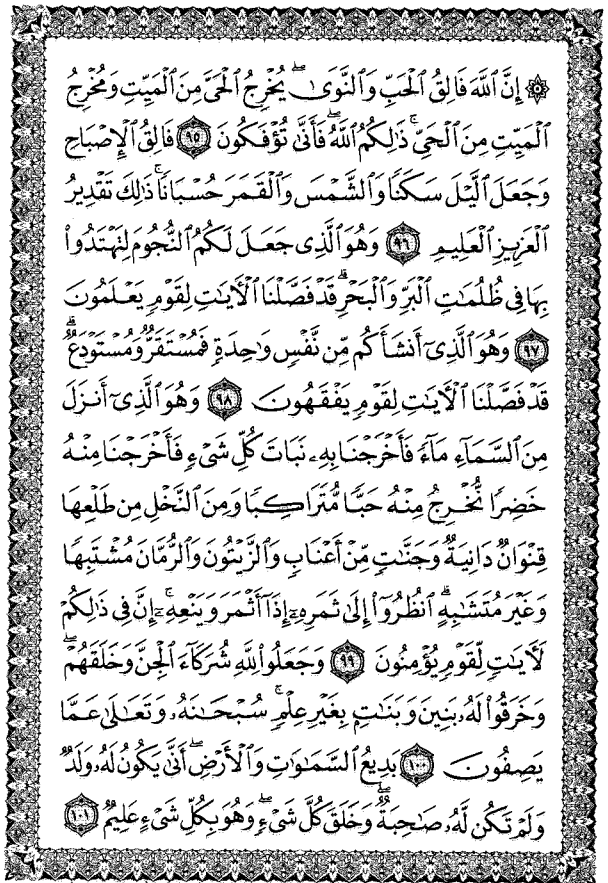 ۞ إِنَّ ٱللَّهَ فَالِقُ ٱلْحَبِّ وَٱلنَّوَىٰۖ يُخْرِجُ ٱلْحَيَّ مِنَ ٱلْمَيِّتِ وَمُخْرِجُ
ٱلْمَيِّتِ مِنَ ٱلْحَيِّۚ ذَٰلِكُمُ ٱللَّهُۖ فَأَنَّىٰ تُؤْفَكُونَ ۝٩٥ فَالِقُ ٱلْإِصْبَاحِ
وَجَعَلَ ٱلَّيْلَ سَكَنًا وَٱلشَّمْسَ وَٱلْقَمَرَ حُسْبَانًاۚ ذَٰلِكَ تَقْدِيرُ
ٱلْعَزِيزِ ٱلْعَلِيمِ ۝٩٦ وَهُوَ ٱلَّذِى جَعَلَ لَكُمُ ٱلنُّجُومَ لِتَهْتَدُوا۟
بِهَا فِى ظُلُمَٰتِ ٱلْبَرِّ وَٱلْبَحْرِۗ قَدْ فَصَّلْنَا ٱلْءَايَٰتِ لِقَوْمٍ يَعْلَمُونَ
۝٩٧ وَهُوَ ٱلَّذِىٓ أَنشَأَكُم مِّن نَّفْسٍ وَٰحِدَةٍ فَمُسْتَقَرٌّ وَمُسْتَوْدَعٌۗ
قَدْ فَصَّلْنَا ٱلْءَايَٰتِ لِقَوْمٍ يَفْقَهُونَ ۝٩٨ وَهُوَ ٱلَّذِىٓ أَنزَلَ
مِنَ ٱلسَّمَآءِ مَآءً فَأَخْرَجْنَا بِهِۦ نَبَاتَ كُلِّ شَىْءٍ فَأَخْرَجْنَا مِنْهُ
خَضِرًا نُّخْرِجُ مِنْهُ حَبًّا مُّتَرَاكِبًا وَمِنَ ٱلنَّخْلِ مِن طَلْعِهَا
قِنْوَانٌ دَانِيَةٌ وَجَنَّٰتٍ مِّنْ أَعْنَابٍ وَٱلزَّيْتُونَ وَٱلرُّمَّانَ مُشْتَبِهًا
وَغَيْرَ مُتَشَٰبِهٍۗ ٱنظُرُوٓا۟ إِلَىٰ ثَمَرِهِۦٓ إِذَآ أَثْمَرَ وَيَنْعِهِۦٓۚ إِنَّ فِى ذَٰلِكُمْ
لَءَايَٰتٍ لِّقَوْمٍ يُؤْمِنُونَ ۝٩٩ وَجَعَلُوا۟ لِلَّهِ شُرَكَآءَ ٱلْجِنَّ وَخَلَقَهُمْۖ
وَخَرَقُوا۟ لَهُۥ بَنِينَ وَبَنَٰتٍۭ بِغَيْرِ عِلْمٍۚ سُبْحَٰنَهُۥ وَتَعَٰلَىٰ عَمَّا
يَصِفُونَ ۝١٠٠ بَدِيعُ ٱلسَّمَٰوَٰتِ وَٱلْأَرْضِۖ أَنَّىٰ يَكُونُ لَهُۥ وَلَدٌ
وَلَمْ تَكُن لَّهُۥ صَٰحِبَةٌۖ وَخَلَقَ كُلَّ شَىْءٍۖ وَهُوَ بِكُلِّ شَىْءٍ عَلِيمٌ ۝١٠١